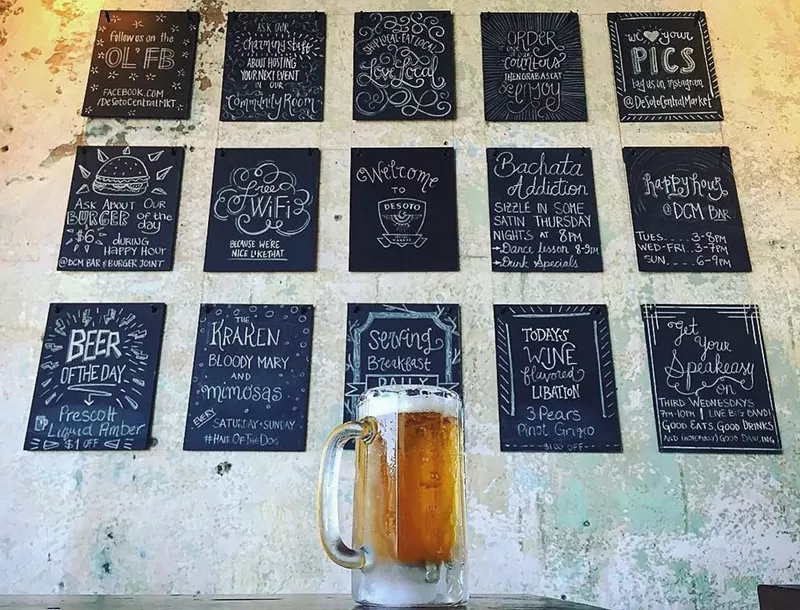 Follow us on the
OL' FB
FACEBOOK.COM
/DeSotoCentralMKT
ASK OUR
charming staff
ABOUT HOSTING
YOUR NEXT EVENT
IN OUR
Community Room
SHOP LOCAL EAT LOCAL
Love Local
ORDER
counters
THEN GRAB A SEAT
enjoy
we your
PICS
tag us on instagram
@DeSotoCentralMarket
ASK ABOUT OUR
BURGER of the
day
$6 DURING
HAPPY HOUR
@DCM BAR & BURGER JOINT
Free
WiFi
BECAUSE WE'RE
NICE LIKE THAT
Welcome
TO
DESOTO
CENTRAL
MARKET
Bachata
Addiction
SIZZLE IN SOME
SATIN THURSDAY
NIGHTS AT 8PM
Dance lesson 8-9PM
Drink Specials
happy hour
@ DCM BAR
TUES.....3-8PM
WED-FRI...3-7PM
SUN......6-9PM
BEER
OF THE DAY
Prescott
Liquid Amber
$1 OFF
THE
KRAKEN
BLOODY MARY
AND
mimosas
EVERY
SATURDAY & SUNDAY
#HAIROFTHEDOG
Serving
Breakfast
DAILY
TODAYS
WINE
flavored
LIBATION
3 Pears
Pinot Grigio
$1.00 OFF
Get
Your
Speakeasy
ON
THIRD WEDNESDAYS
7PM-10PM | LIVE BIG BAND!
GOOD EATS, GOOD DRINKS
AND (HOPEFULLY) GOOD DANCING